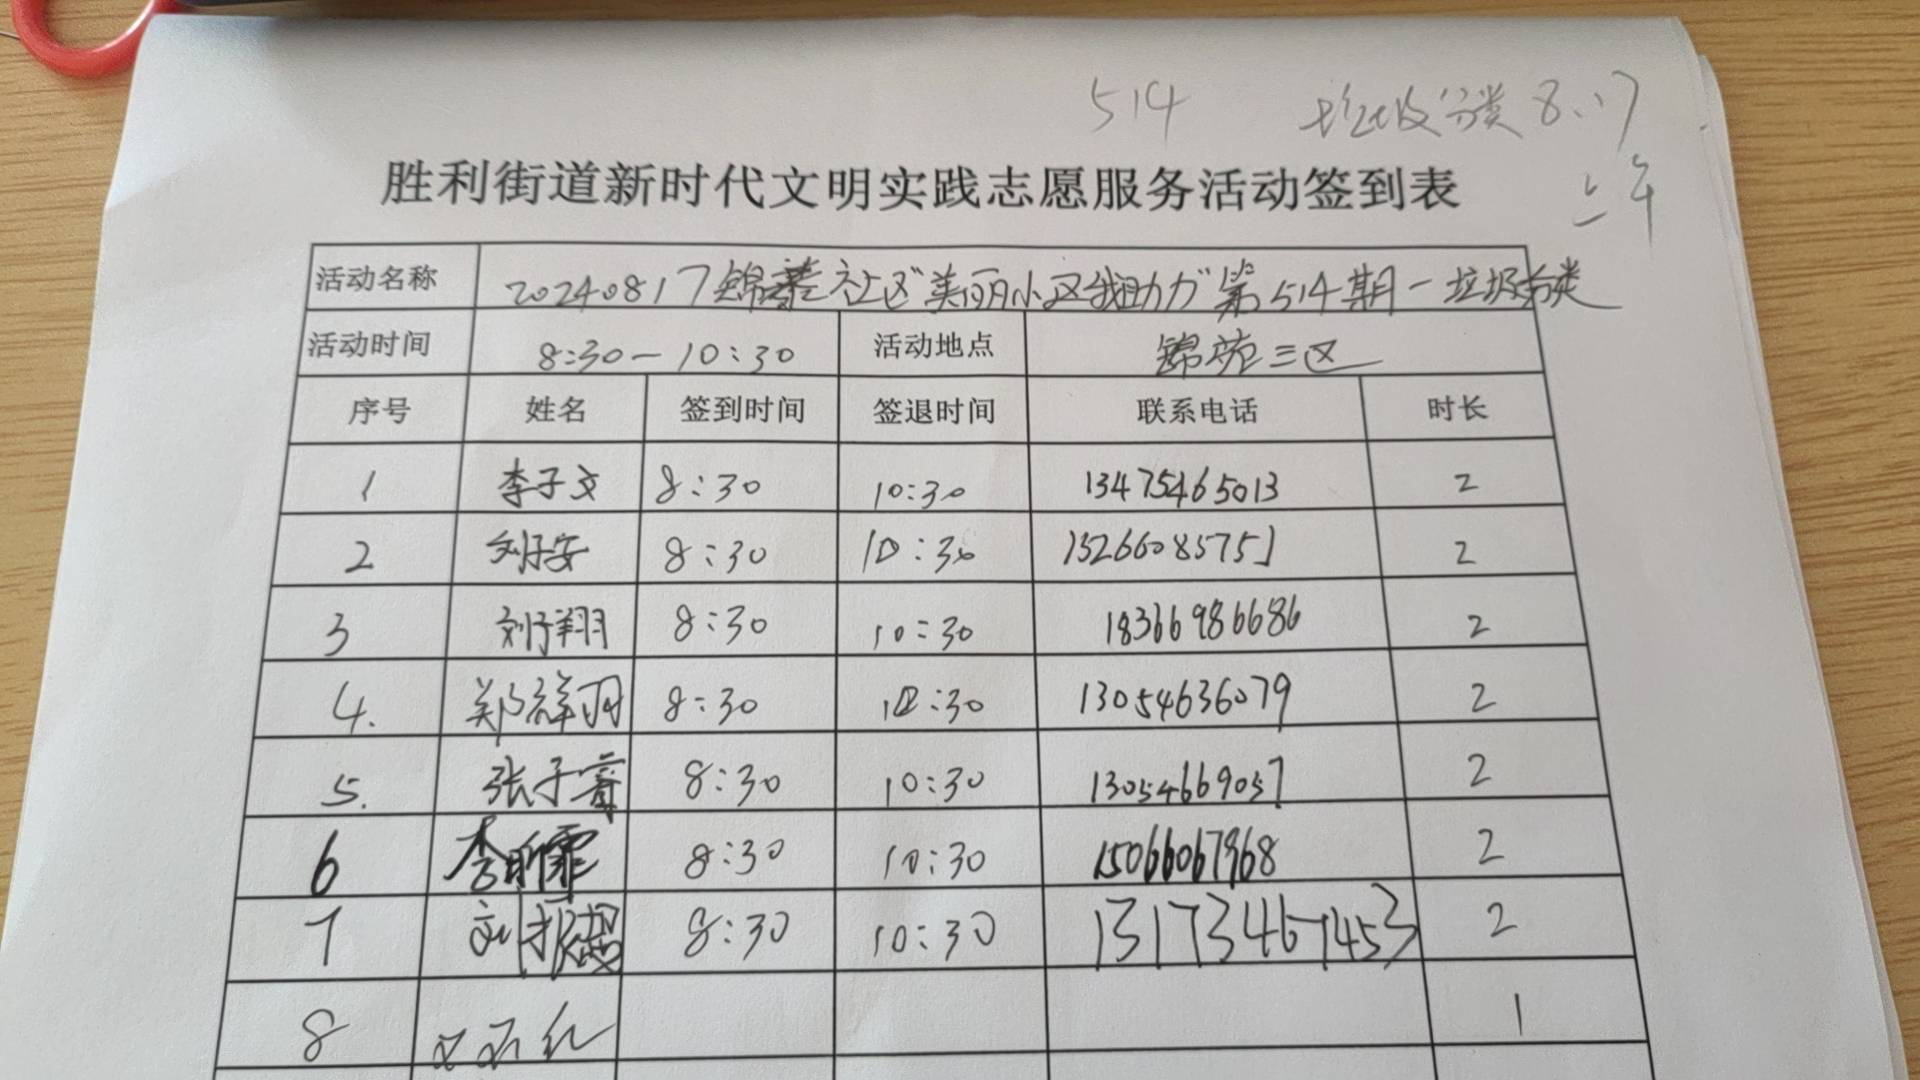 514 垃圾分类 8.17
上午
胜利街道新时代文明实践志愿服务活动签到表
活动名称 20240817锦泰社区"美丽小区我助力"第514期-垃圾分类
活动时间 8:30-10:30 活动地点 锦苑三区
序号 姓名 签到时间 签退时间 联系电话 时长
1 李子文 8:30 10:30 13475465013 2
2 刘子安 8:30 10:30 13266085751 2
3 刘子翔 8:30 10:30 18366986686 2
4. 郑祥羽 8:30 10:30 13054636079 2
5. 张子睿 8:30 10:30 13054669057 2
6 李昕霏 8:30 10:30 15066067968 2
7 刘振超 8:30 10:30 13173467453 2
8 1